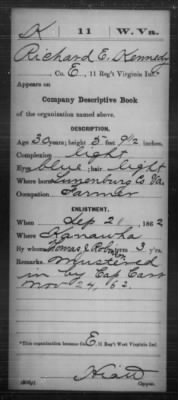 K | 11 | W. Va.
Richard E. Kennedy
Co. E, 11 Reg't Virginia Inf.*
Appears on
Company Descriptive Book
of the organization named above.
DESCRIPTION.
Age 30 years; height 5 feet 9 1/2 inches.
Complexion light
Eyes blue; hair light
Where born Lunenburg Co Va.
Occupation Farmer
ENLISTMENT.
When Sep 20, 1862
Where Kanawha
By whom Thomas J. term 3 y'rs.
Remarks: Mustered
in by Cap
Nov 24, 62.
*This organization became Co. E, 11 Reg't West Virginia Inf.
Hiatt
Copyist.